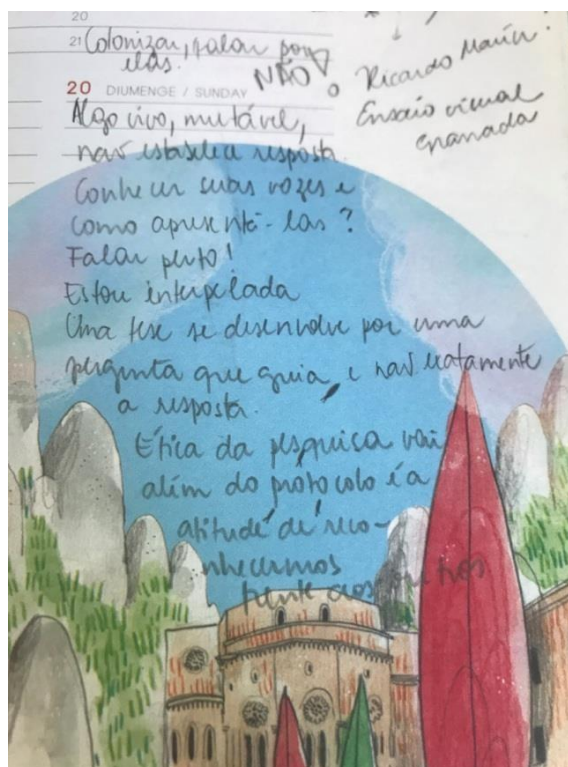 20
21 Colonizar, falar por
elas.
NÃO
Ricardo Marín.
Ensaio visual
Granada
20 DIUMENGE / SUNDAY
Algo vivo, mutável,
nao estabelece resposta
Conhecer suas vozes e
como apresentá-las?
Falar perto!
Estou interpelada
Uma tese se desenvolve por uma
pergunta que guia e nao exatamente
a resposta.
Ética da pesquisa vai
além do protocolo é a
atitude de reco-
nhecermos
frente aos outros